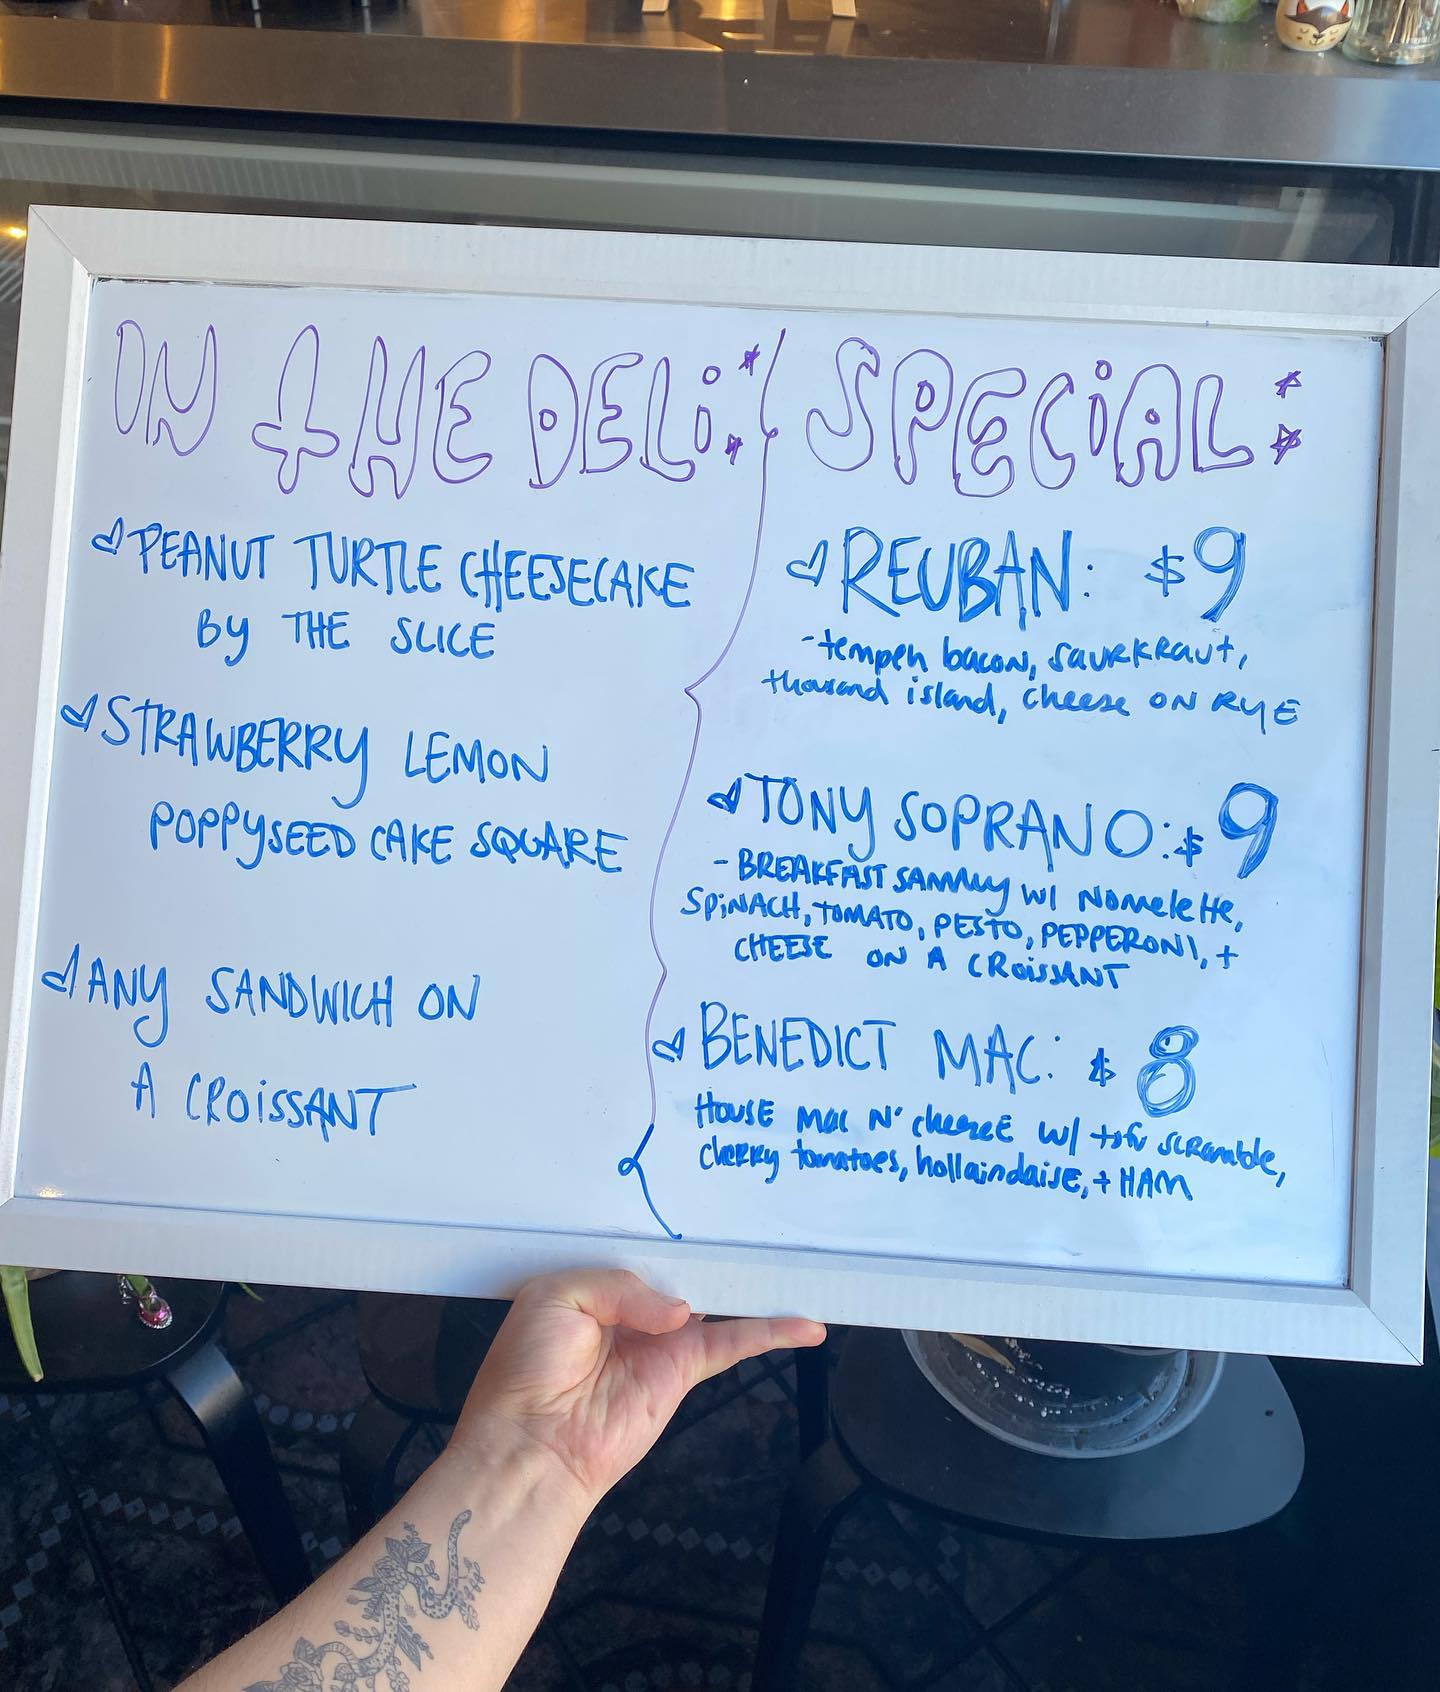 ON THE DELi:
PEANUT TURTLE CHEESECAKE
By THE SLICE
STRAWBERRY LEMON
POPPYSEED CAKE SQUARE
ANY SANDWICH ON
A CROiSSANT
SPECiAL:
REUBAN: $9
-tempeh bacon, saurkraut,
thousand island, cheese ON RYE
TONY SOPRANO: $9
- BREAKFAST SAMMY w/ Nomelette,
SPiNACH, TOMATO, PESTO, PEPPERONI, +
CHEESE ON A CROiSSANT
BENEDICT MAC: $8
HOUSE mac N' cheeze w/ tofu scramble,
cherry tomatoes, hollaindaise, + HAM